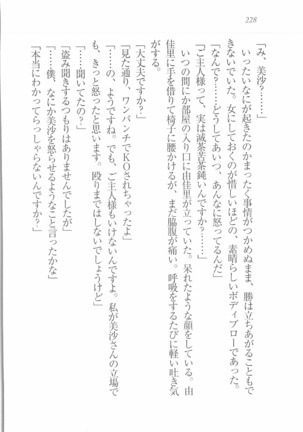 228
「み、美沙？……」
いったいなにが起きたのかまったく事情がつかめぬまま、勝は立ちあがることもで
きないでいた。女にしておくのが惜しいほどの、素晴らしいボディブローであった。
「なんで？……どうしてあいつ、あんなに怒ってるんだ」
「ご主人様って、実は滅茶苦茶鈍いんですか？……」
いつの間にか部屋の入り口に由佳里が立っていた。呆れたような顔をしている。由
佳里に手を借りて椅子に腰かけるが、まだ脇腹が痛い。呼吸をするたびに軽い吐き気
がする。
「大丈夫ですか？」
「見た通り、ワンパンチでＫＯされちゃったよ」
「……の、ようですね。でも、ご主人様もいけないんですよ。私が美沙さんの立場で
も、きっと怒ったと思います。殴りまではしないでしょうけど」
「……聞いてたの？」
「盗み聞きするつもりはありませんでしたが」
「……僕、なにか美沙を怒らせるようなこと言ったかな」
「本当にわかってらっしゃらないんですか？」